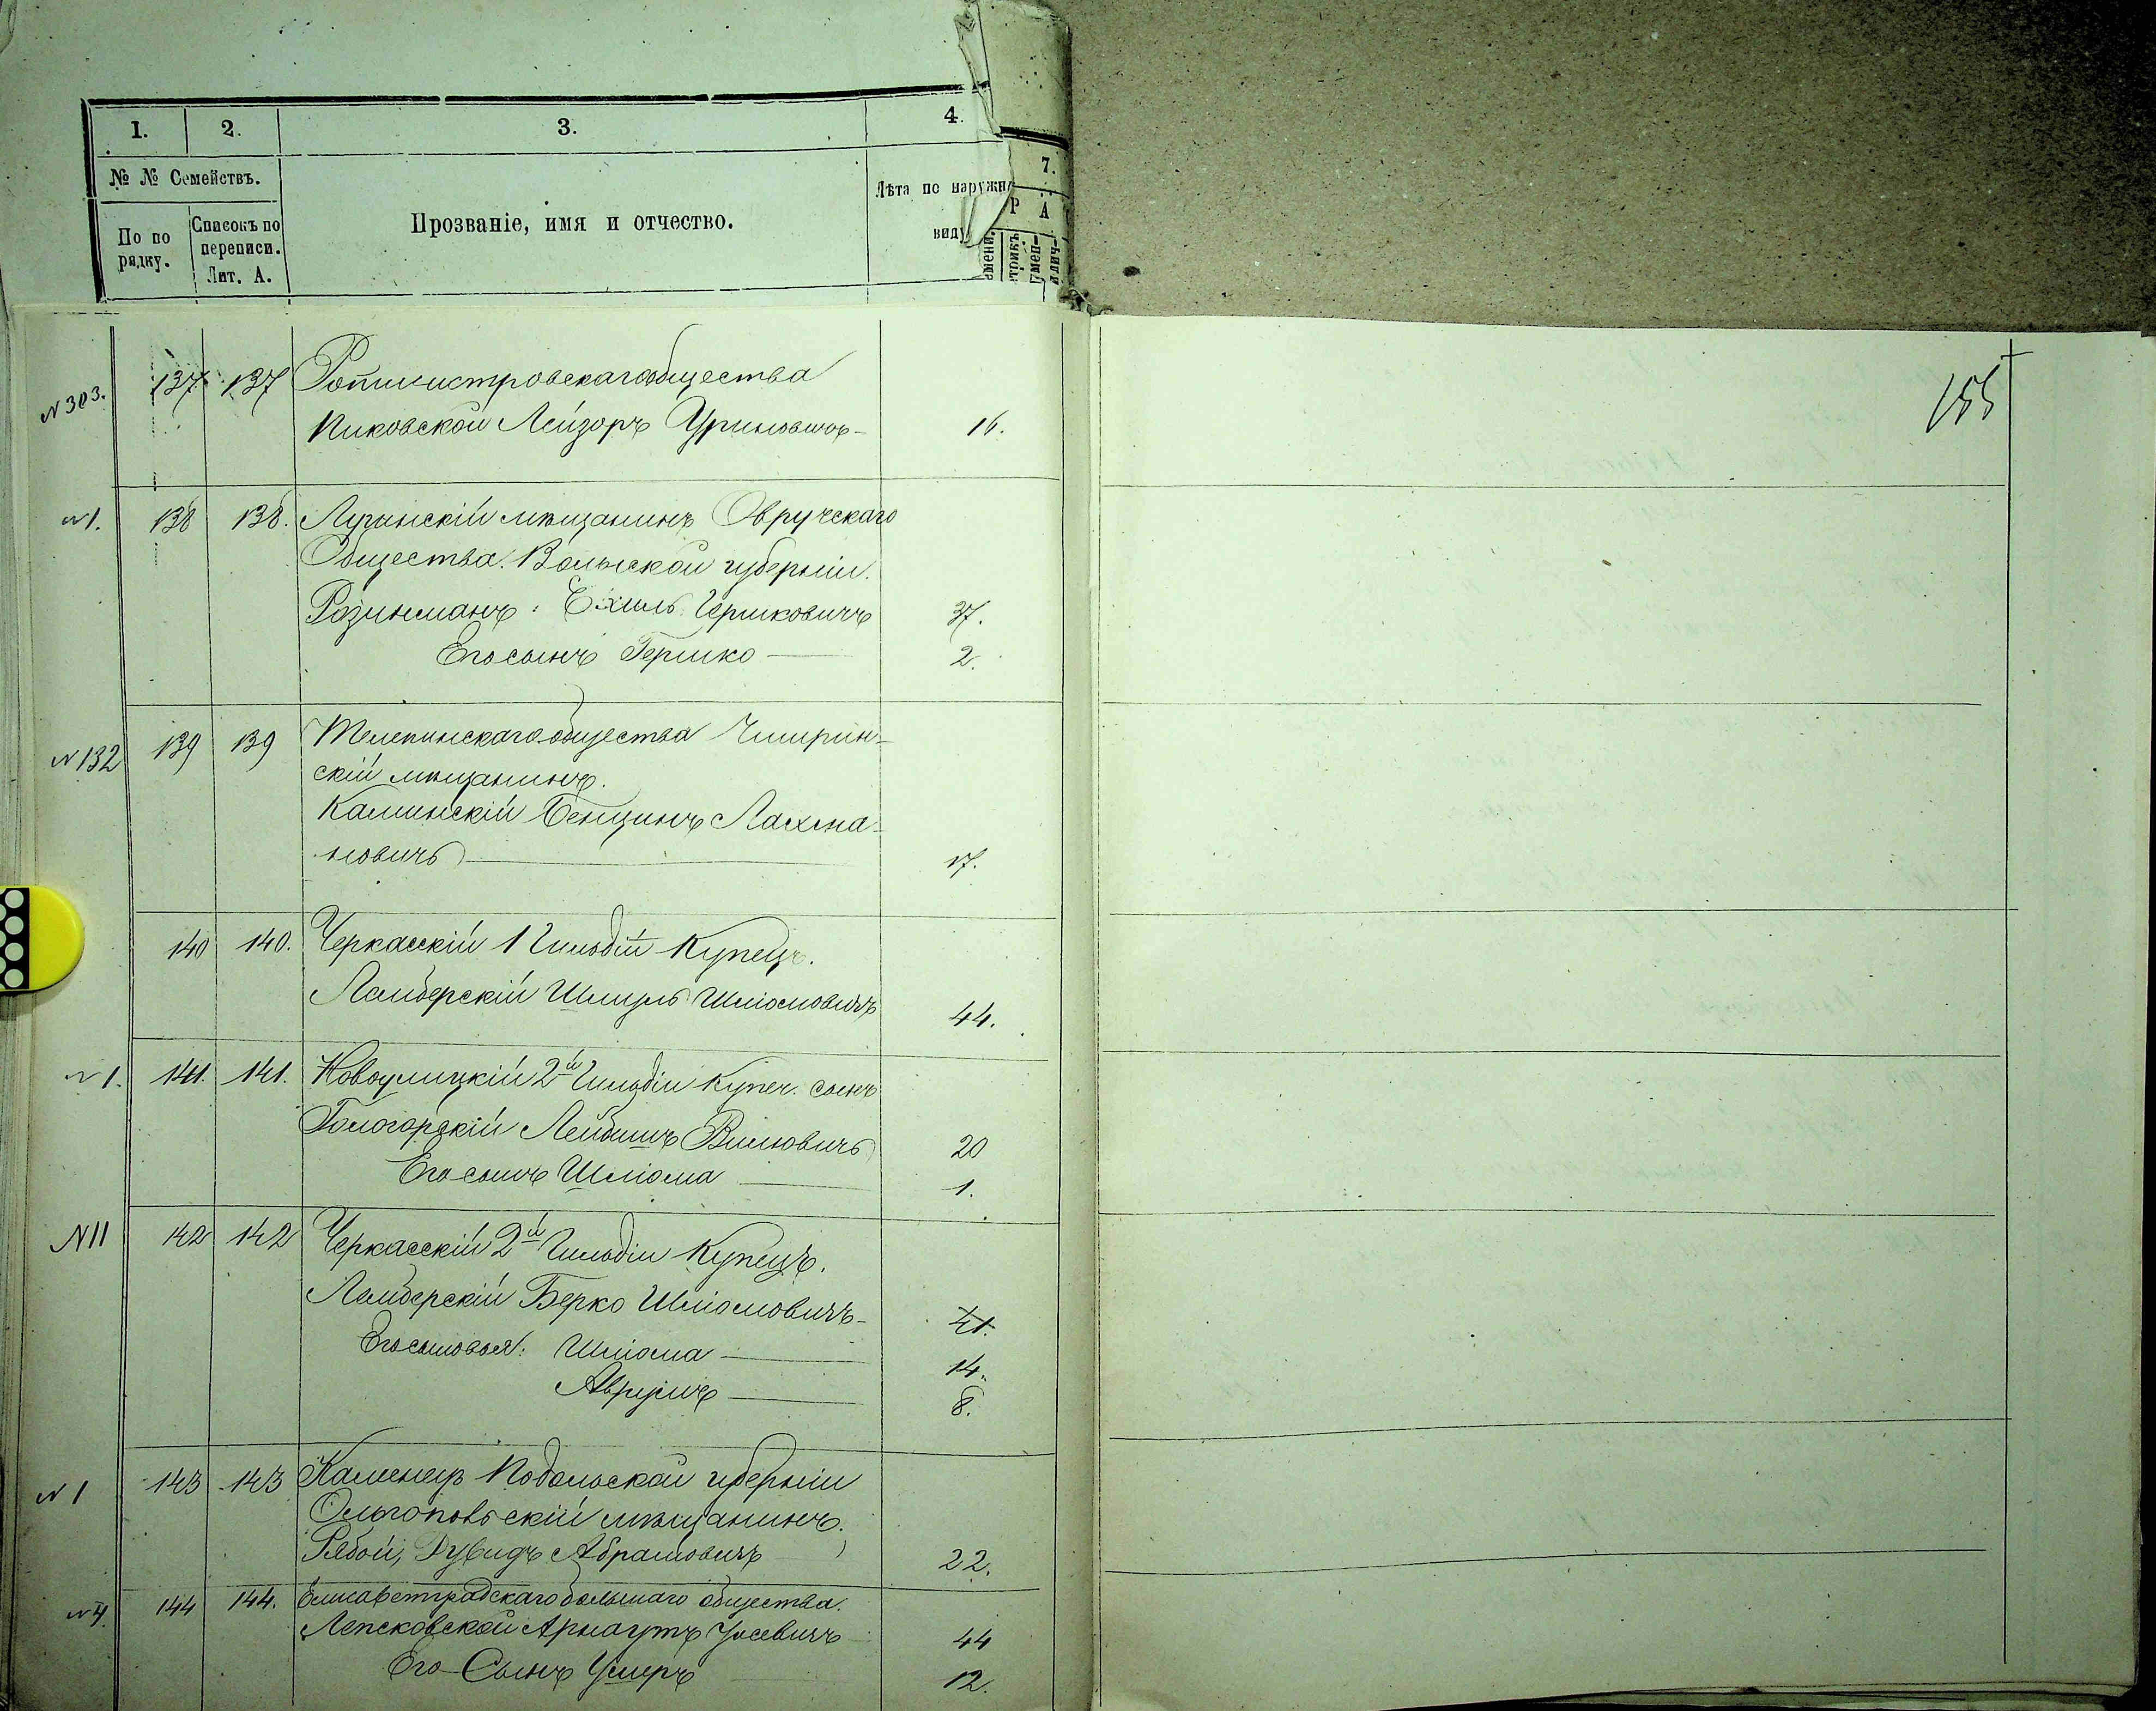 1. 2. 3. 4.
7.
№ № Семействъ.
По по рядку.
Списокъ по переписи. Лит. А.
Прозваніе, имя и отчество.
Лѣта по наружн
виду
Р А
№ 303. 137 137 Ротмистровскаго общества
Пиковской Лейзоръ Уриновичъ - 16.
155
№ 1. 138 138. Лугинскій мѣщанинъ Овручскаго
Общества. Волынской губерніи.
Розинманъ: Ехиль Гершковичъ 37.
Его сынъ Гершко 2.
№ 132 139 139 Телепинскаго общества Чигирин-
скій мѣщанинъ.
Каминскій Бенцинъ Лахма-
новичъ 17.
140 140. Черкасскій 1 Гильдіи Купецъ.
Ламберскій Шмуль Шліомовичъ 44.
№ 1. 141. 141. Новоушицкій 2й Гильдіи Купеч. сынъ
Гологорскій Лейбишъ Вилювичъ 20
Его сынъ Шліома 1.
N 11 142 142 Черкасскій 2й Гильдіи Купецъ.
Ламберскій Берко Шліомовичъ - 41.
Его сыновья: Шліома 14.
Аврумъ 8.
№ 1 143 143 Каменецъ Подольской губерніи
Ольгопольскій мѣщанинъ.
Рябой, Дувидъ Абрамовичъ 22.
№ 4 144 144. Елисаветградскаго большаго общества.
Лепсковской Арнаутъ Іосевичъ 44
Его Сынъ Ушеръ 12.